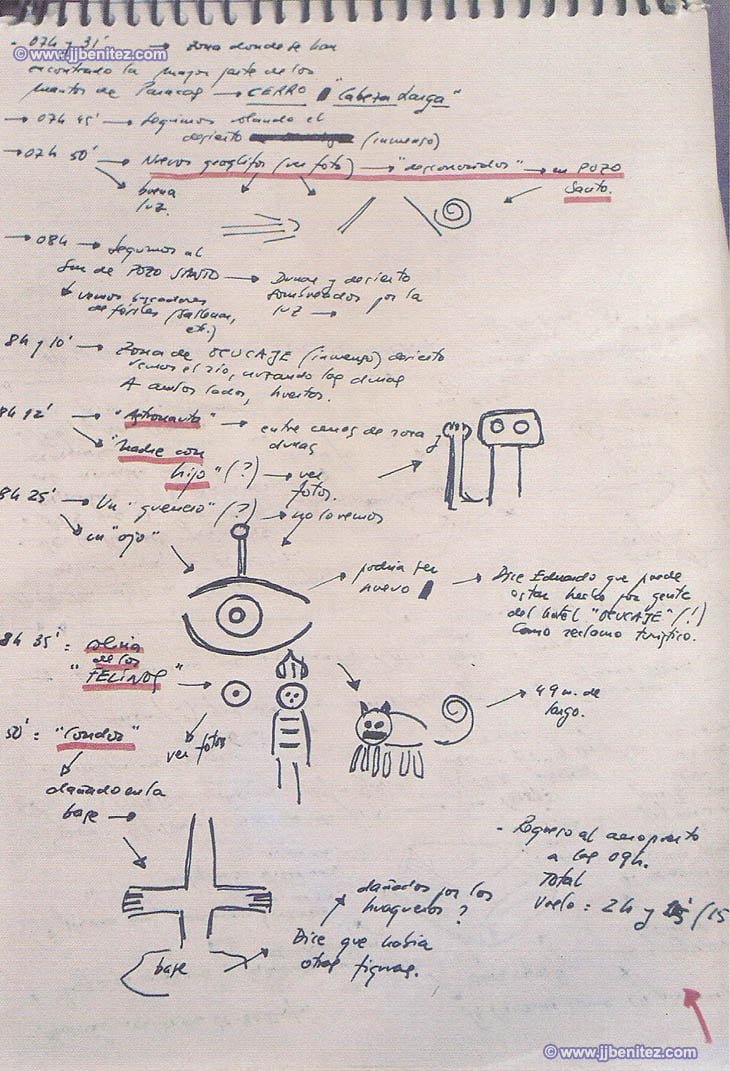 - 07h y 31' → zona donde se han
© www.jjbenitez.com
encontrado la mayor parte de los
mantos de Paracas → CERRO "Cabeza Larga"
→ 07h 45' → Seguimos volando el
desierto (inmenso)
→ 07h 50' → Nuevos geoglifos (ver foto) → "desconocidos" → en POZO
Santo.
buena
luz.
→ 08h → Seguimos al
Sur de POZO SANTO → Dunas y desierto
sombreados por la
luz →
vemos buscadores
de fósiles (ballenas,
etc.)
8h y 10' → Zona de OCUCAJE (inmenso) desierto
vemos el río, cruzando las dunas
A ambos lados, huertos.
8h 12' → "Astronauta" → entre cerros de roca y
dunas
"Madre con
hijo" (?) → ver
fotos.
8h 25' → Un "guerrero" (?) → no lo vemos
un "ojo"
podría ser
nuevo → Dice Eduardo que puede
estar hecho por gente
del hotel "OCUCAJE" (!)
como reclamo turístico.
8h 35': colina
de los
"FELINOS" →
→ 49 m. de
largo.
ver fotos
50': "Condor"
dañado en la
base →
- Regreso al aeropuerto
a las 09h.
Total
vuelo: 2h y 15'
dañados por los
huaqueros?
Dice que había
otras figuras.
base
© www.jjbenitez.com